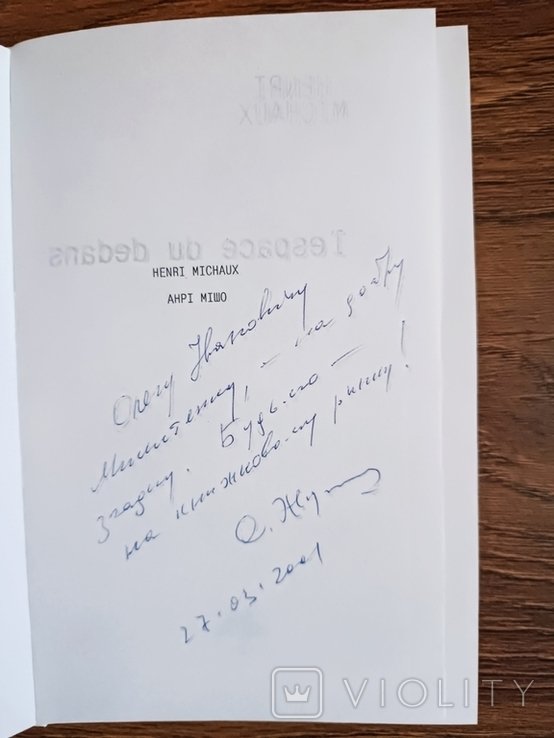 HENRI
MICHAUX
l'espace du dedans
HENRI MICHAUX
АНРІ МІШО
Олегу Івановичу
на добру
згадку. Будьмо –
на книжковому ринку!
О.
27.03.2001
VIOLITY